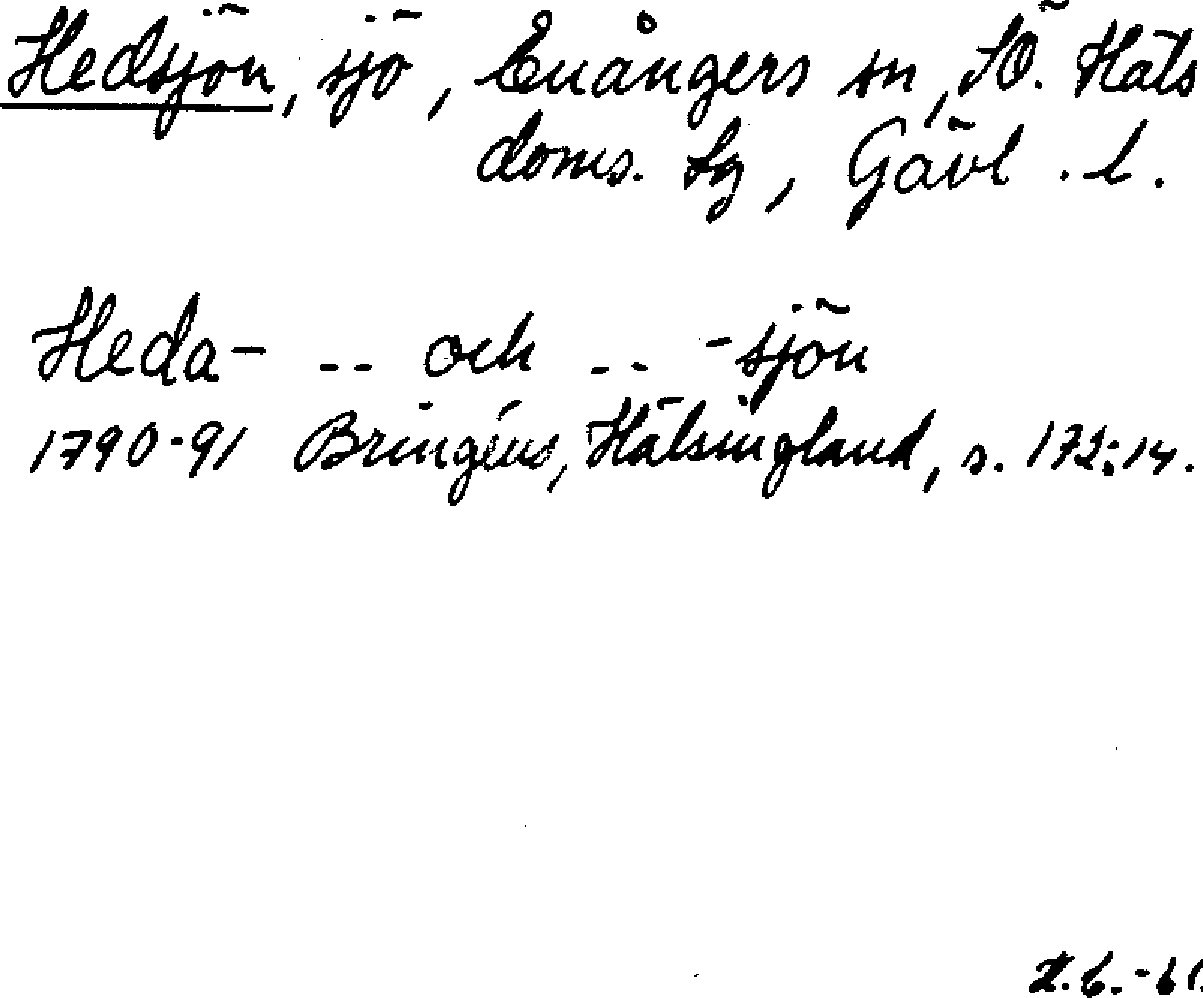 Hedsjön, sjö, Enångers sn, N Ö. Häls
doms. sg, Gävl. l.
Heda- -- och -- -sjön
1790-91 Bringéus, Hälsingland, s. 172:14.